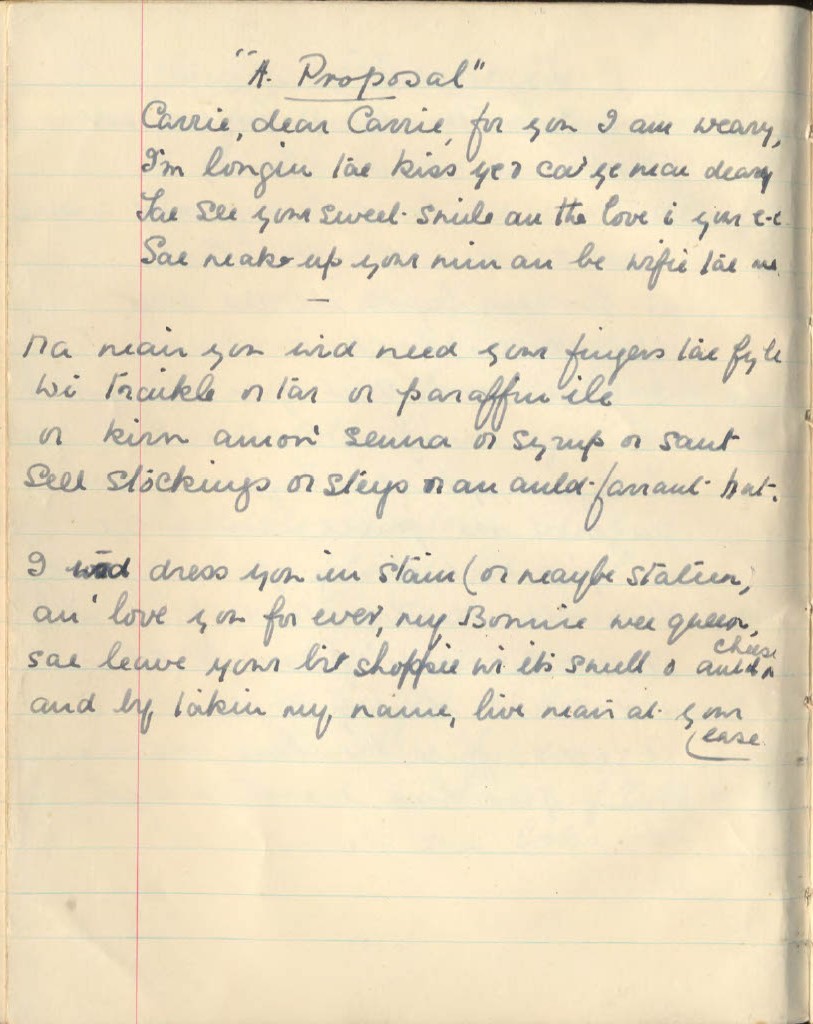 "A. Proposal"
Carrie, dear Carrie, for you I am weary,
I'm longin tae kiss yer ca' ye mau deary
Tae see your sweet smile an the love i your e-e
Sae make up your min an be wifie tae me
Na mair you wid need your fingers tae fyle
Wi traikle or tar or paraffin ile
or kirn amon' senna or syrup or saut
Sell stockings or steys or an auld-farrant hat.
I wid dress you in stain (or maybe statien)
an' love you for ever, my Bonnie wee queen,
sae leave your bit shoppie wi it's smell o auld
cheese
and by takin my name, live mair at your
ease